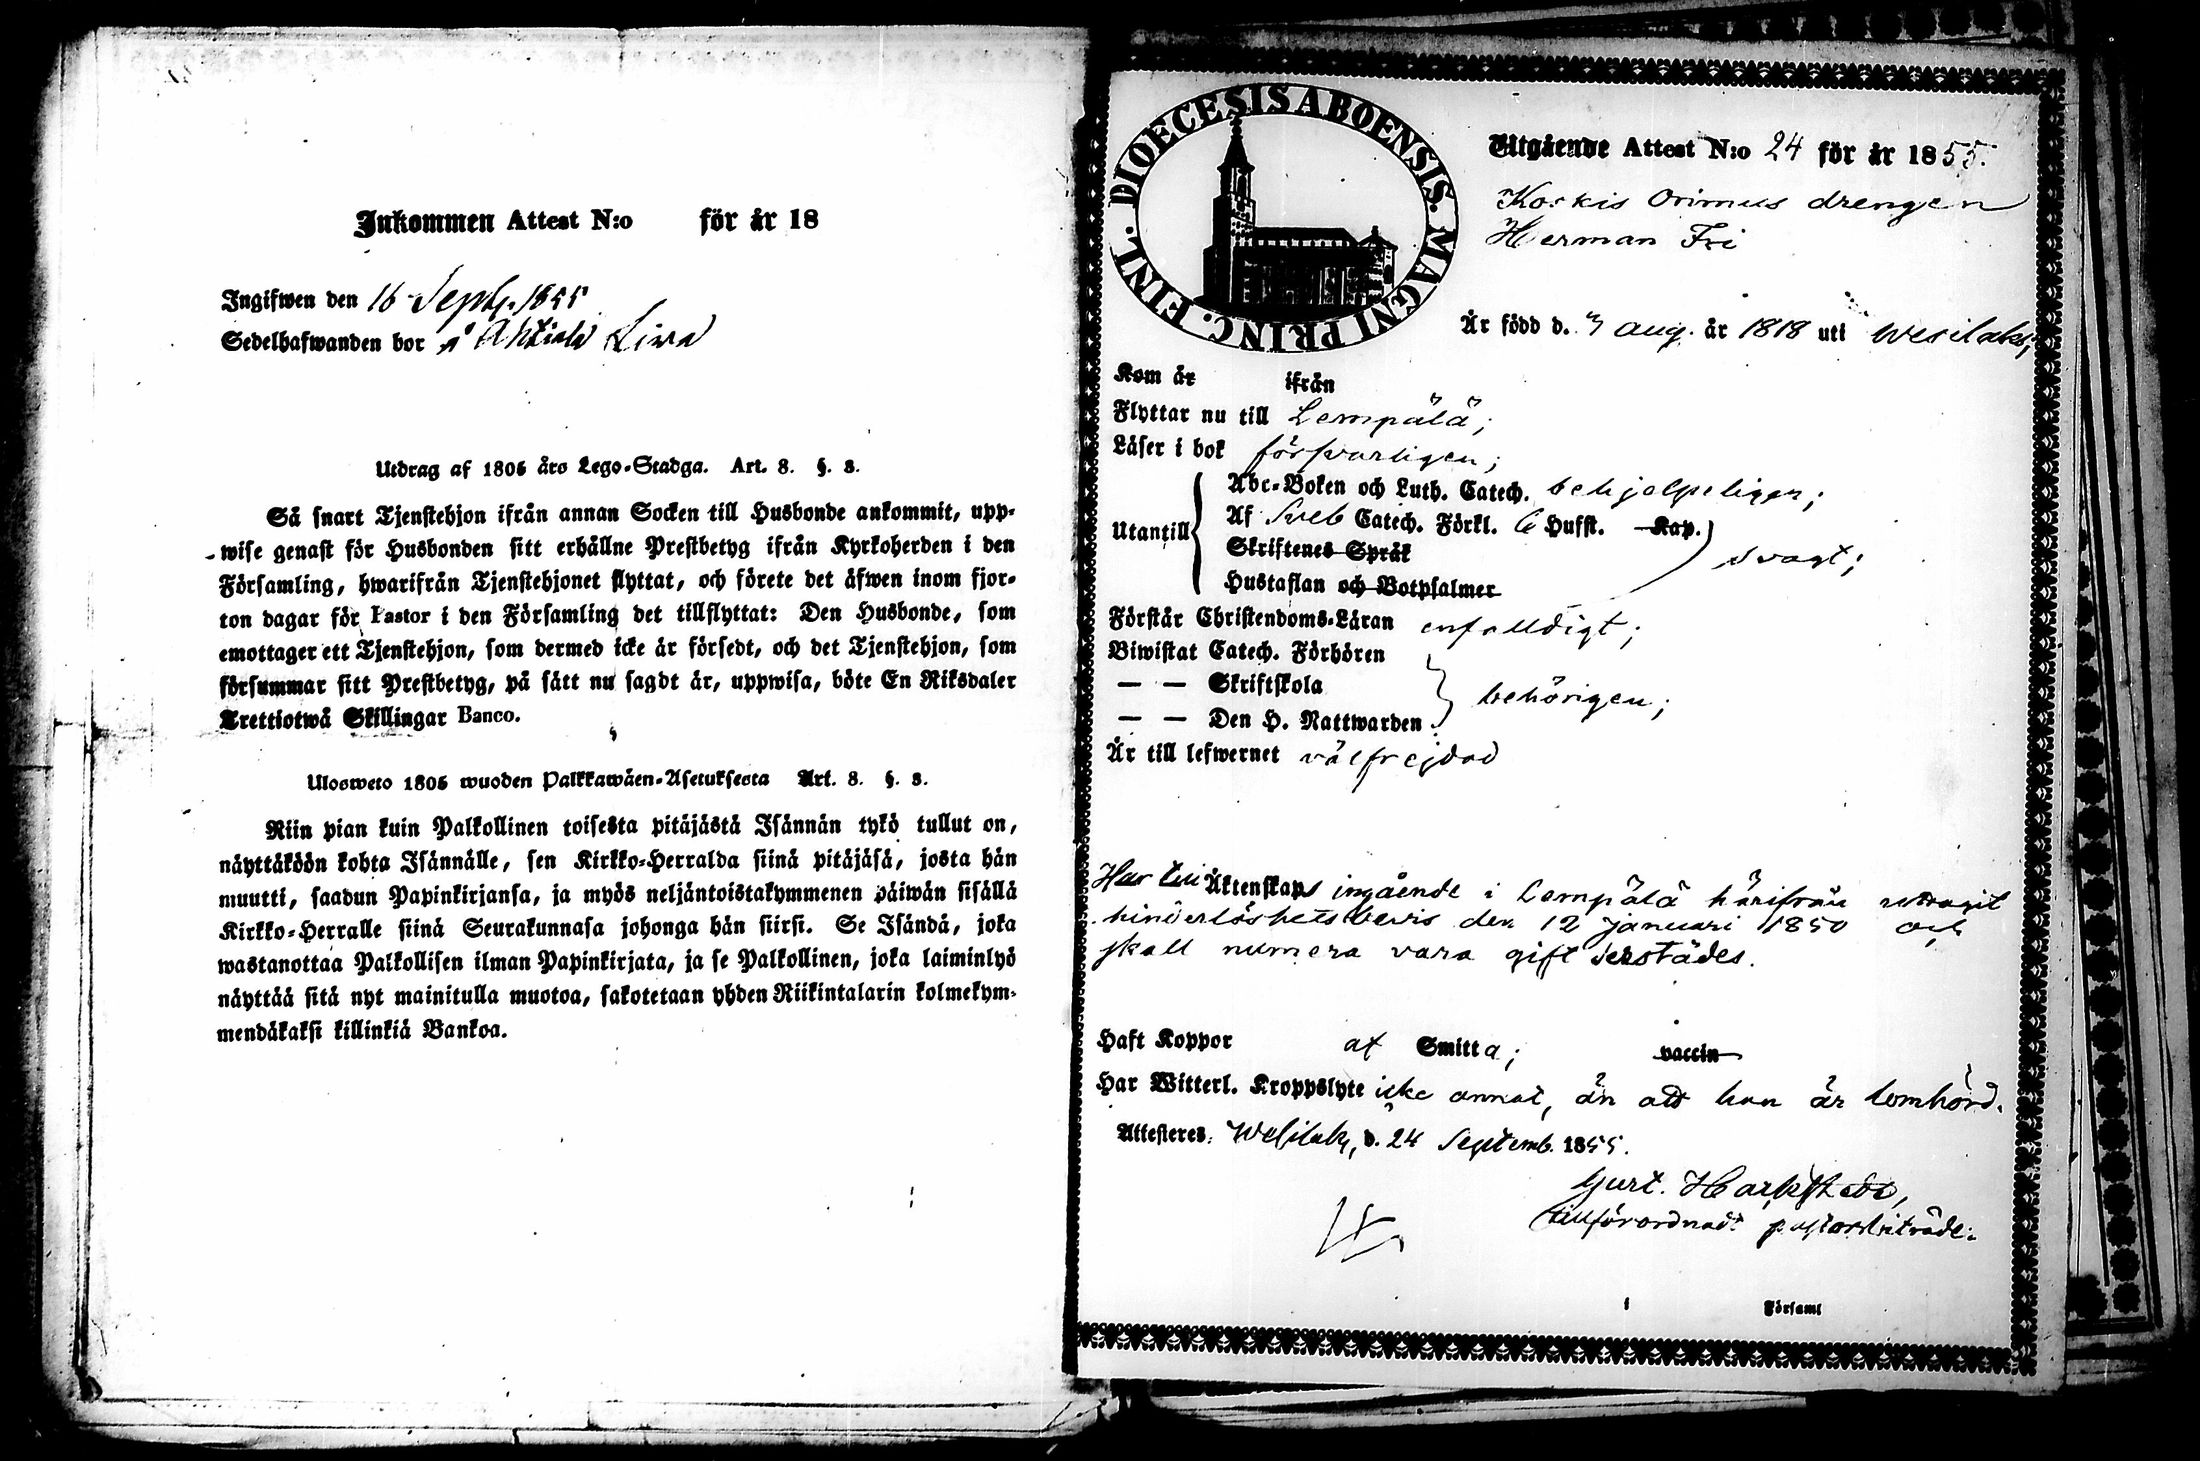 Inkommen Attest N:o för år 18
Ingifwen den 16 Septb. 1855
Sedelhafwanden bor å
Utdrag af 1805 års Lego-Stadga. Art. 8. §. 3.
Så snart Tjenstehjon ifrån annan Socken till Husbonde ankommit, upp-
wise genast för Husbonden sitt erhållne Prestbetyg ifrån Kyrkoherden i den
Församling, hwarifrån Tjenstehjonet flyttat, och förete det äfwen inom fjor-
ton dagar för Pastor i den Församling det tillflyttat: Den Husbonde, som
emottager ett Tjenstehjon, som dermed icke är försedt, och det Tjenstehjon, som
försummar sitt Prestbetyg, på sätt nu sagdt är, uppwisa, böte En Riksdaler
Trettiotwå Skillingar Banco.
Ulosweto 1805 wuoden Palkkawäen-Asetuksesta Art. 8. §. 3.
Niin pian kuin Palkollinen toisesta pitäjästä Isännän tykö tullut on,
näyttäköön kohta Isännälle, sen Kirkko-Herralda siinä pitäjäsä, josta hän
muutti, saadun Papinkirjansa, ja myös neljäntoistakymmenen päiwän sisällä
Kirkko-Herralle siinä Seurakunnasa johonga hän siirsi. Se Isändä, joka
wastanottaa Palkollisen ilman Papinkirjata, ja se Palkollinen, joka laiminlyö
näyttää sitä nyt mainitulla muotoa, sakotetaan yhden Riikintalarin kolmekym-
mendäkaksi killinkiä Bankoa.
DIOECESIS ABOENSIS. MAGNI PRINC. FINL.
Utgående Attest N:o 24 för år 1855.
Koskis Orimus drengen
Herman Fri
Är född d. 3 aug. år 1818 uti Wesilaks;
Kom år ifrån
Flyttar nu till Lempälä;
Läser i bok försvarligen;
Utantill
Abc-Boken och Luth. Catech. behjelpeligen;
Af Sveb Catech. Förkl. 6 Hufst. Kap.
Skriftenes Språk
svagt;
Hustaflan och Botpsalmer
Förstår Christendoms-Läran enfalldigt;
Biwistat Catech. Förhören
— — Skriftskola
behörigen;
— — Den H. Nattwarden
Är till lefwernet välfrejdad
Har till Äktenskaps ingående i Lempälä härifrån uttagit
hinderlöshetsbevis den 12 Januari 1850 och
skall numera vara gift derstädes.
Haft Koppor af Smitta; vaccin
Har Witterl. Kroppslyte icke annat, än att han är lomhörd.
Attesteres: Wesilaks, d. 24 Septemb. 1855.
Gust.
tillförordnadt pastorsbiträde.
i Församl